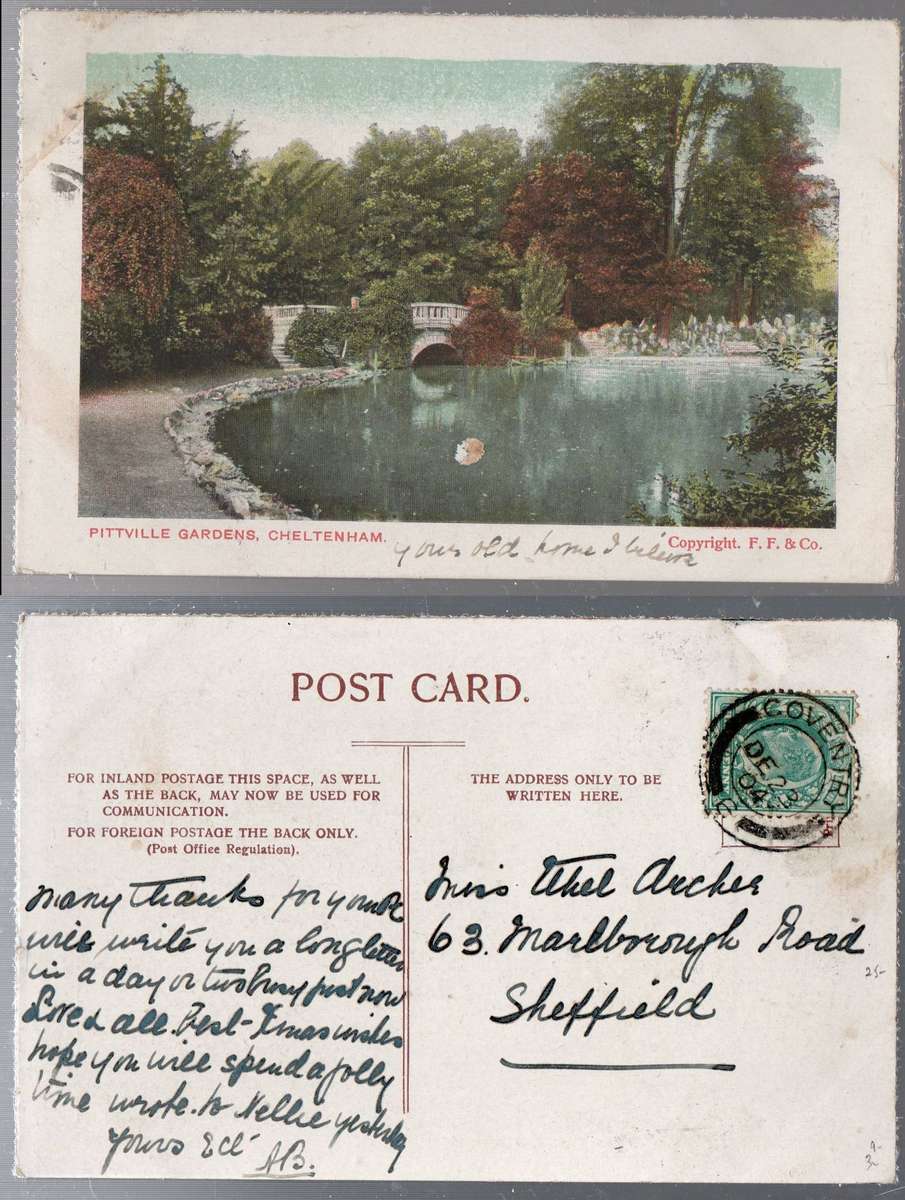 PITTVILLE GARDENS, CHELTENHAM.
your old home I believe
Copyright. F. F. & Co.
POST CARD.
FOR INLAND POSTAGE THIS SPACE, AS WELL
AS THE BACK, MAY NOW BE USED FOR
COMMUNICATION.
FOR FOREIGN POSTAGE THE BACK ONLY.
(Post Office Regulation).
many thanks for your PC
will write you a long letter
in a day or two busy just now
Love to all. Best Xmas wishes
hope you will spend a jolly
time wrote to Nellie yesterday
Yours Ect
AB.
THE ADDRESS ONLY TO BE
WRITTEN HERE.
COVENTRY
DE 23
04
Miss Ethel Archer
63. Marlborough Road
Sheffield
25-